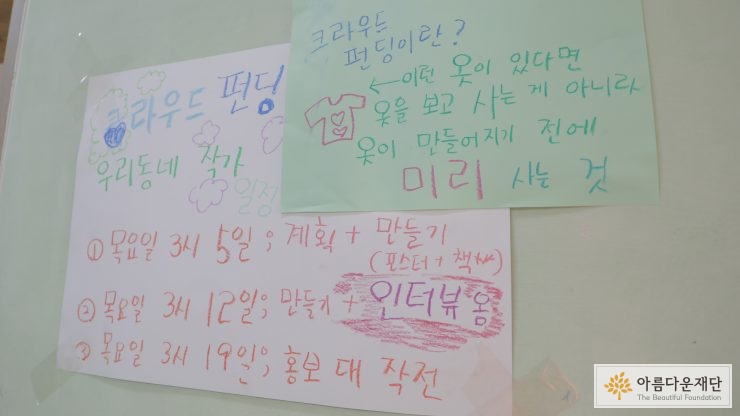 크라우드 펀딩
우리동네 작가
일정
① 목요일 3시 5일; 계획 + 만들기
(포스터 + 책
② 목요일 3시 12일; 만들기 + 인터뷰 옴
③ 목요일 3시 19일; 홍보 대 작전
크라우드
펀딩이란?
←이런 옷이 있다면
옷을 보고 사는 게 아니라
옷이 만들어지기 전에
미리 사는 것
아름다운재단
The Beautiful Foundation